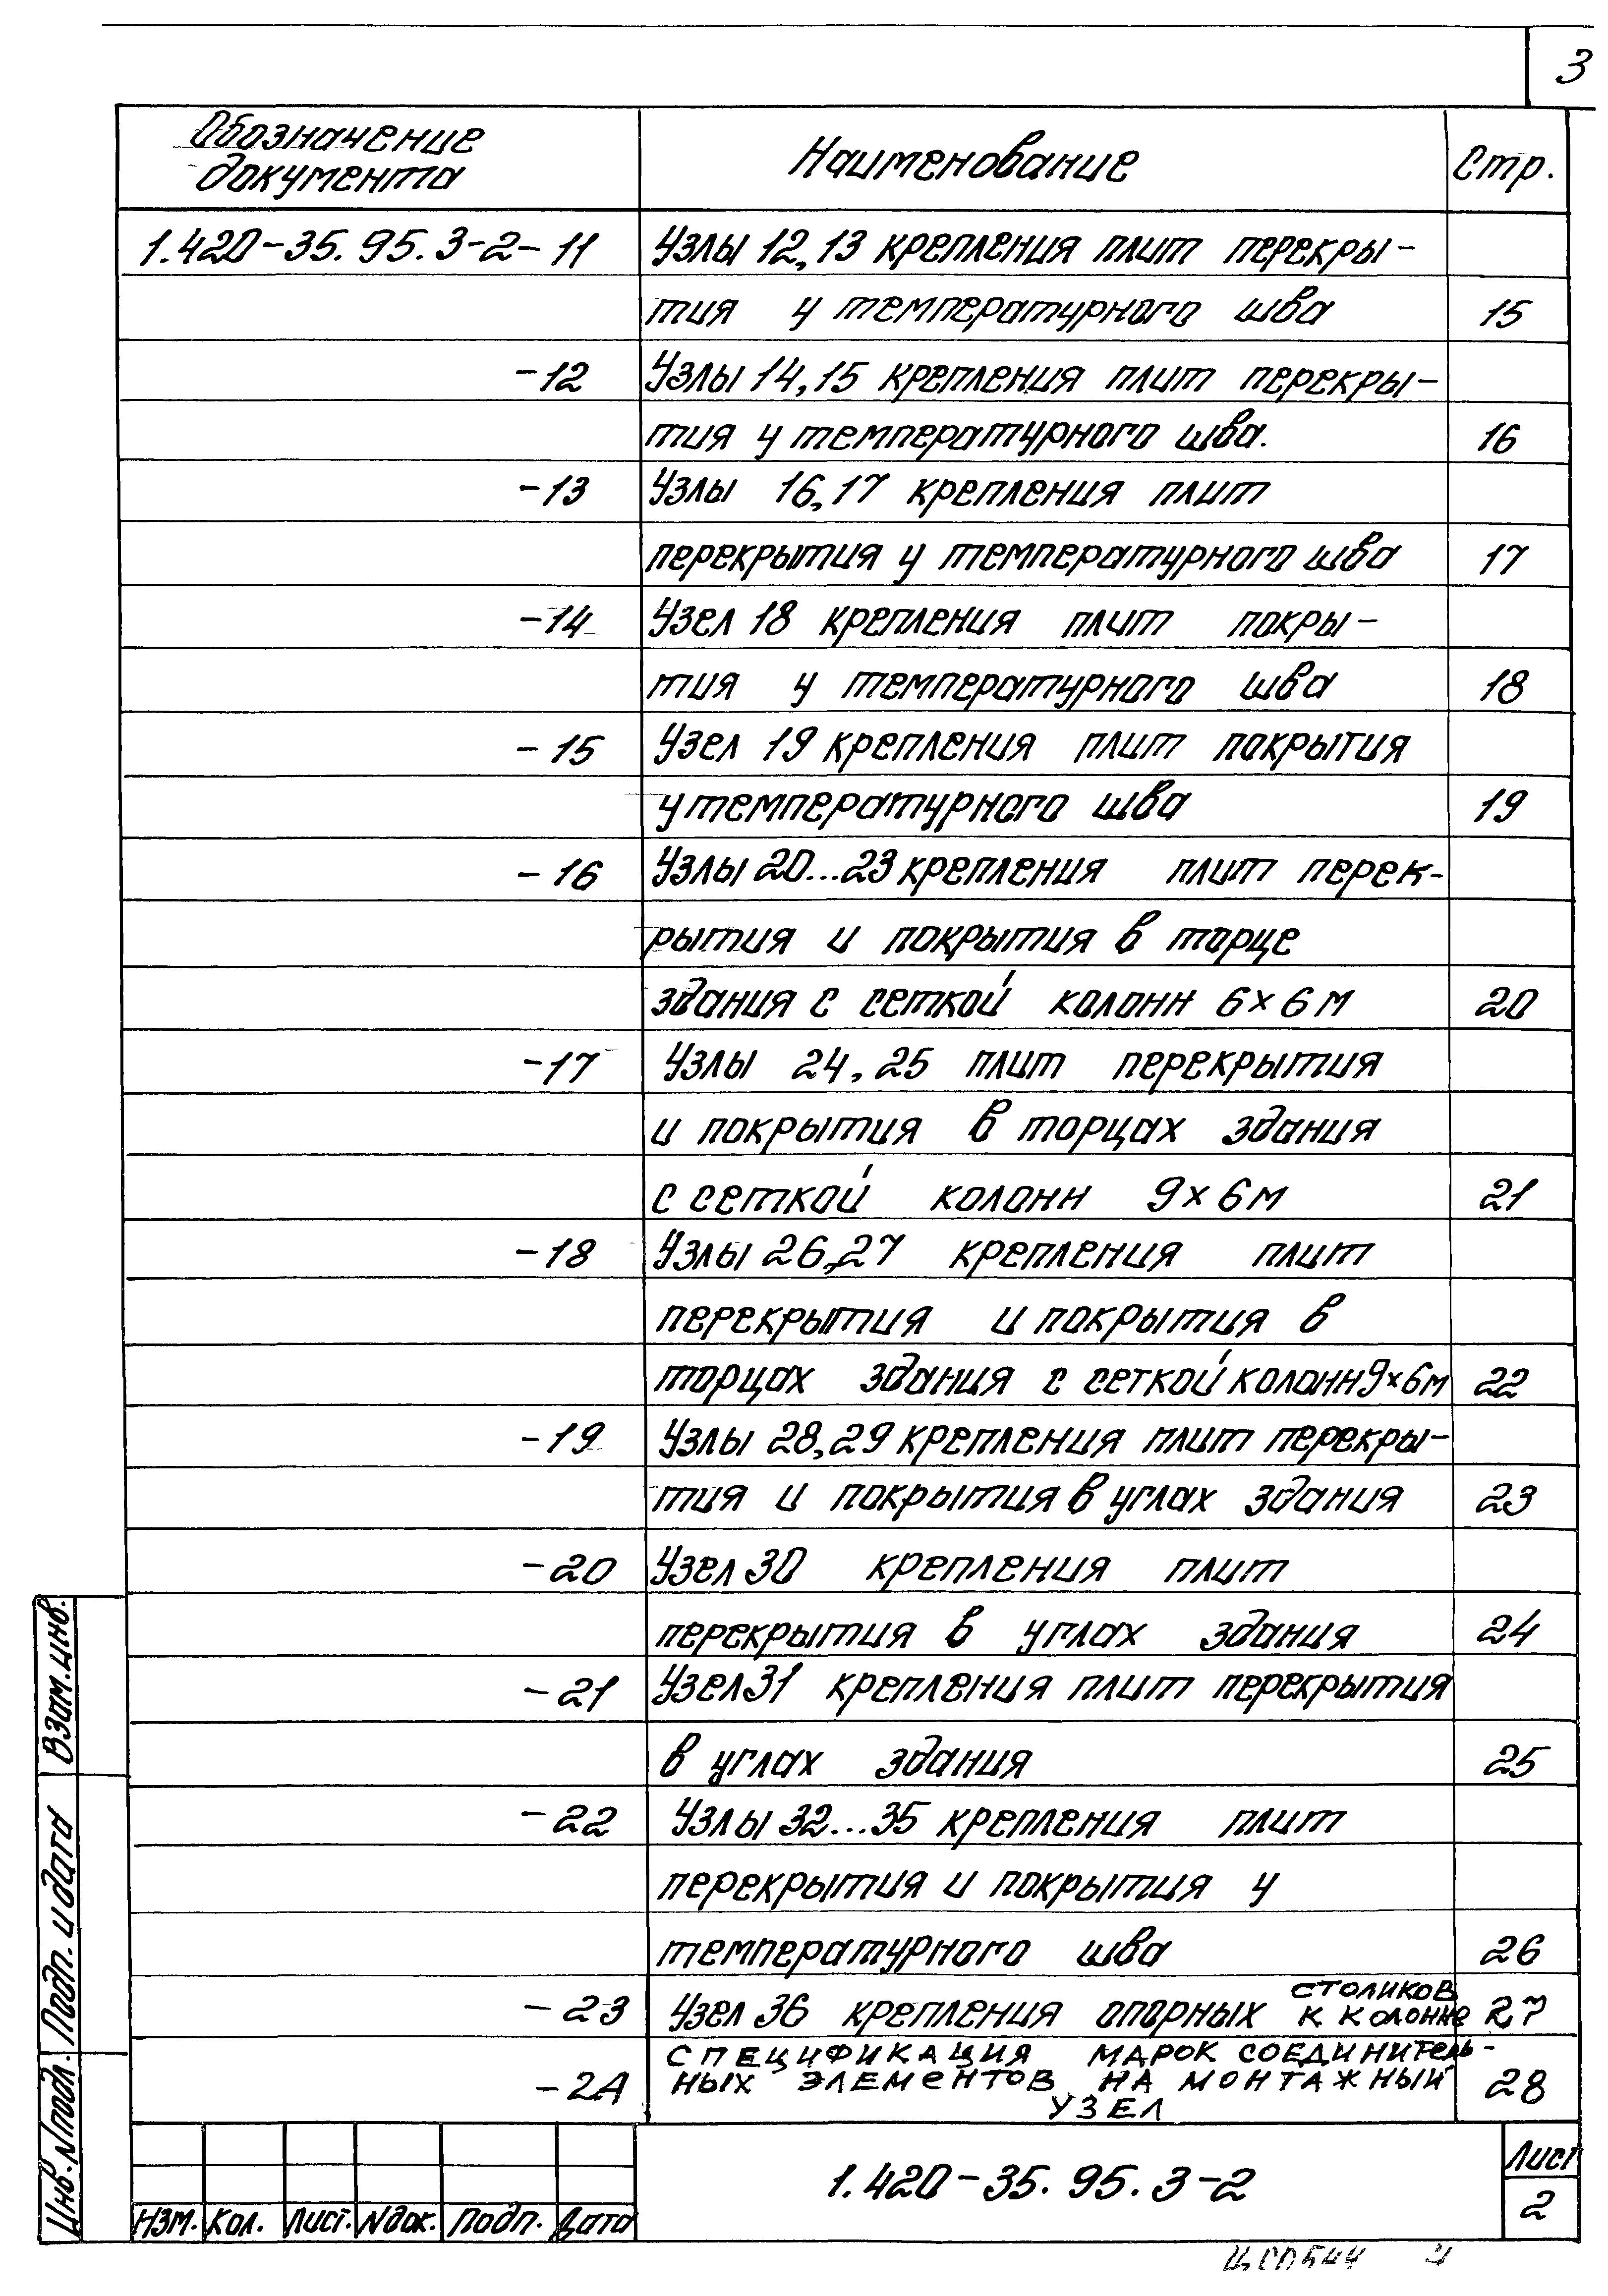 3
Обозначение документа Наименование Стр.
1.420-35.95.3-2-11 Узлы 12,13 крепления плит перекры-
тия у температурного шва 15
-12 Узлы 14,15 крепления плит перекры-
тия у температурного шва. 16
-13 Узлы 16,17 крепления плит
перекрытия у температурного шва 17
-14 Узел 18 крепления плит покры-
тия у температурного шва 18
-15 Узел 19 крепления плит покрытия
у температурного шва 19
-16 Узлы 20...23 крепления плит перек-
рытия и покрытия в торце
здания с сеткой колонн 6×6м 20
-17 Узлы 24,25 плит перекрытия
и покрытия в торцах здания
с сеткой колонн 9×6м 21
-18 Узлы 26,27 крепления плит
перекрытия и покрытия в
торцах здания с сеткой колонн 9×6м 22
-19 Узлы 28,29 крепления плит перекры-
тия и покрытия в углах здания 23
-20 Узел 30 крепления плит
перекрытия в углах здания 24
-21 Узел 31 крепления плит перекрытия
в углах здания 25
-22 Узлы 32...35 крепления плит
перекрытия и покрытия у
температурного шва 26
-23 Узел 36 крепления опорных столиков к колонне 27
-24 Спецификация марок соединитель-
ных элементов на монтажный 28
узел
Взам.инв.
Подп. и дата
Инв.N подл.
Изм. Кол. Лист. Nдок. Подп. Дата
1.420-35.95.3-2
Лист
2